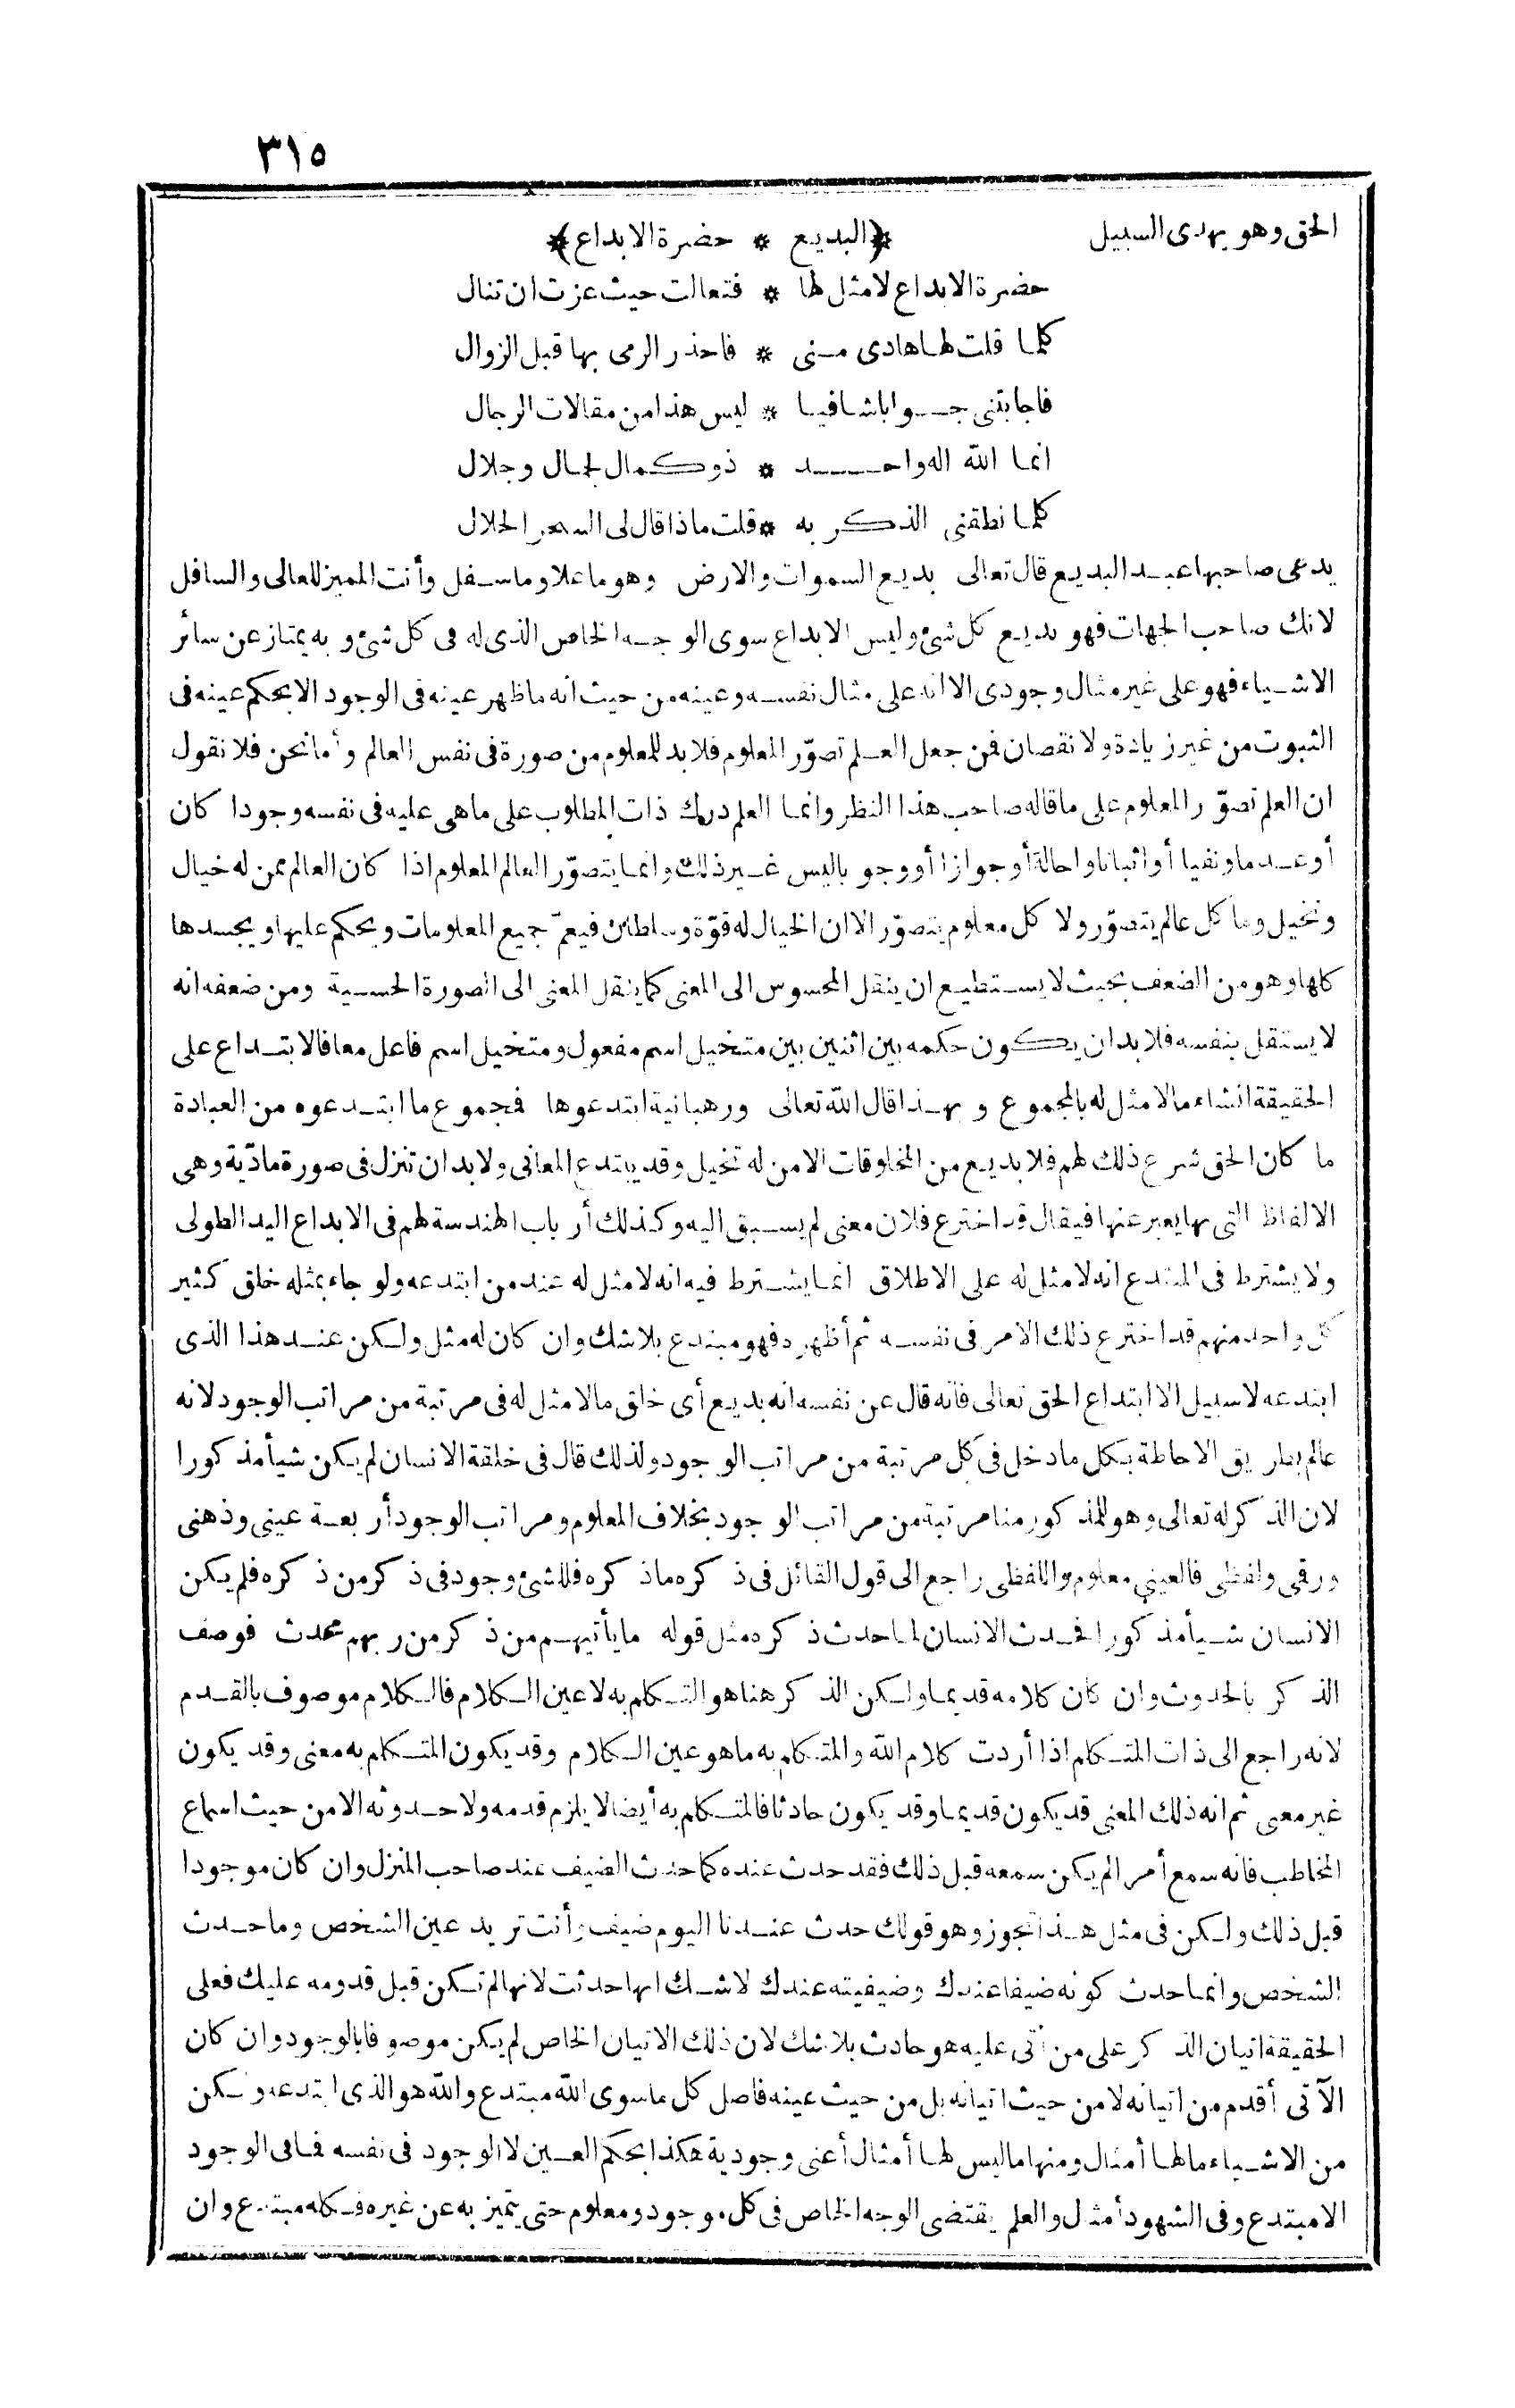 ٣١٥
الحق وهو يهدى السبيل ﴿البديع * حضرة الابداع﴾
حضرة الابداع لا مثل لها * فتعالت حيث عزت ان تنال
كلما قلت لها هادى منى * فاحذر الرمى بها قبل الزوال
فاجابتنى جوابا شافيا * ليس هذا من مقالات الرجال
انما الله اله واحد * ذو كمال لجمال وجلال
كلما نطقنى الذكر به * قلت ماذا قال لى السحر الحلال
يدعى صاحبها عبد البديع قال تعالى بديع السموات والارض وهو ما علا وما سفل وأنت المميز للعالى والسافل
لانك صاحب الجهات فهو بديع كل شئ وليس الابداع سوى الوجه الخاص الذى له فى كل شئ وبه يمتاز عن سائر
الاشياء فهو على غير مثال وجودى الا انه على مثال نفسه وعينه من حيث انه ما ظهر عينه فى الوجود الا بحكم عينه فى
الثبوت من غير زيادة ولا نقصان فمن جعل العلم تصوّر المعلوم فلابد للمعلوم من صورة فى نفس العالم وأما نحن فلا نقول
ان العلم تصوّر المعلوم على ما قاله صاحب هذا النظر وانما العلم درك ذات المطلوب على ما هى عليه فى نفسه وجودا كان
أو عدما ونفيا أو اثباتا واحالة أو جوازا أو وجوبا ليس غير ذلك وانما يتصوّر العالم المعلوم اذا كان العالم ممن له خيال
وتخيل وما كل عالم يتصوّر ولا كل معلوم يتصوّر الا ان الخيال له قوّة وسلطان فيعمّ جميع المعلومات ويحكم عليها ويجسدها
كلها وهو من الضعف بحيث لا يستطيع ان ينقل المحسوس الى المعنى كما ينقل المعنى الى الصورة الحسية ومن ضعفه انه
لا يستقل بنفسه فلابد ان يكون حكمه بين اثنين بين متخيل اسم مفعول ومتخيل اسم فاعل معا فالابتداع على
الحقيقة انشاء ما لا مثل له بالمجموع وبهذا قال الله تعالى ورهبانية ابتدعوها فجموع ما ابتدعوه من العبادة
ما كان الحق شرع ذلك لهم فلا بديع من المخلوقات الا من له تخيل وقد يبتدع المعانى ولابد ان تنزل فى صورة مادّية وهى
الالفاظ التى بها يعبر عنها فيقال قد اخترع فلان معنى لم يسبق اليه وكذلك أرباب الهندسة لهم فى الابداع اليد الطولى
ولا يشترط فى المبتدع انه لا مثل له على الاطلاق انما يشترط فيه انه لا مثل له عند من ابتدعه ولو جاء بمثله خلق كثير
كل واحد منهم قد اخترع ذلك الامر فى نفسه ثم أظهره فهو مبتدع بلا شك وان كان له مثل ولكن عند هذا الذى
ابتدعه لا سبيل الا ابتداع الحق تعالى فانه قال عن نفسه انه بديع أى خالق ما لا مثل له فى مرتبة من مراتب الوجود لانه
عالم بطريق الاحاطة بكل ما دخل فى كل مرتبة من مراتب الوجود ولذلك قال فى خلقة الانسان لم يكن شيأ مذكورا
لان الذكر له تعالى وهو للمذكور منا مرتبة من مراتب الوجود بخلاف المعلوم ومراتب الوجود أربعة عينى وذهنى
ورقمى ولفظى فالعينى معلوم واللفظى راجع الى قول القائل فى ذكره ما ذكره فللشئ وجود فى ذكر من ذكره فلم يكن
الانسان شيأ مذكورا فحدث الانسان لما حدث ذكره مثل قوله ما يأتيهم من ذكر من ربهم محدث فوصف
الذكر بالحدوث وان كان كلامه قديما ولكن الذكر هنا هو التكلم به لا عين الكلام فالكلام موصوف بالقدم
لانه راجع الى ذات المتكلم اذا أردت كلام الله والمتكلم به ما هو عين الكلام وقد يكون المتكلم به معنى وقد يكون
غير معنى ثم انه ذلك المعنى قد يكون قديما وقد يكون حادثا فالمتكلم به أيضا لا يلزم قدمه ولا حدوثه الا من حيث اسماع
المخاطب فانه سمع أمرا لم يكن سمعه قبل ذلك فقد حدث عنده كما حدث الضيف عند صاحب المنزل وان كان موجودا
قبل ذلك ولكن فى مثل هذا تجوز وهو قولك حدث عندنا اليوم ضيف وأنت تريد عين الشخص وما حدث
الشخص وانما حدث كونه ضيفا عندك وضيفيته عندك لا شك انها حدثت لانها لم تكن قبل قدومه عليك فعلى
الحقيقة اتيان الذكر على من أتى عليه هو حادث بلا شك لان ذلك الاتيان الخاص لم يكن موصوفا بالوجود وان كان
الآتى أقدم من اتيانه لا من حيث اتيانه بل من حيث عينه فاصل كل ما سوى الله مبتدع والله هو الذى ابتدعه ولكن
من الاشياء ما لها أمثال ومنها ما ليس لها أمثال أعنى وجودية هكذا بحكم العين لا الوجود فى نفسه فما فى الوجود
الا مبتدع وفى الشهود أمثال والعلم يقتضى الوجه الخاص فى كل موجود ومعلوم حتى يتميز به عن غيره فكله مبتدع وان